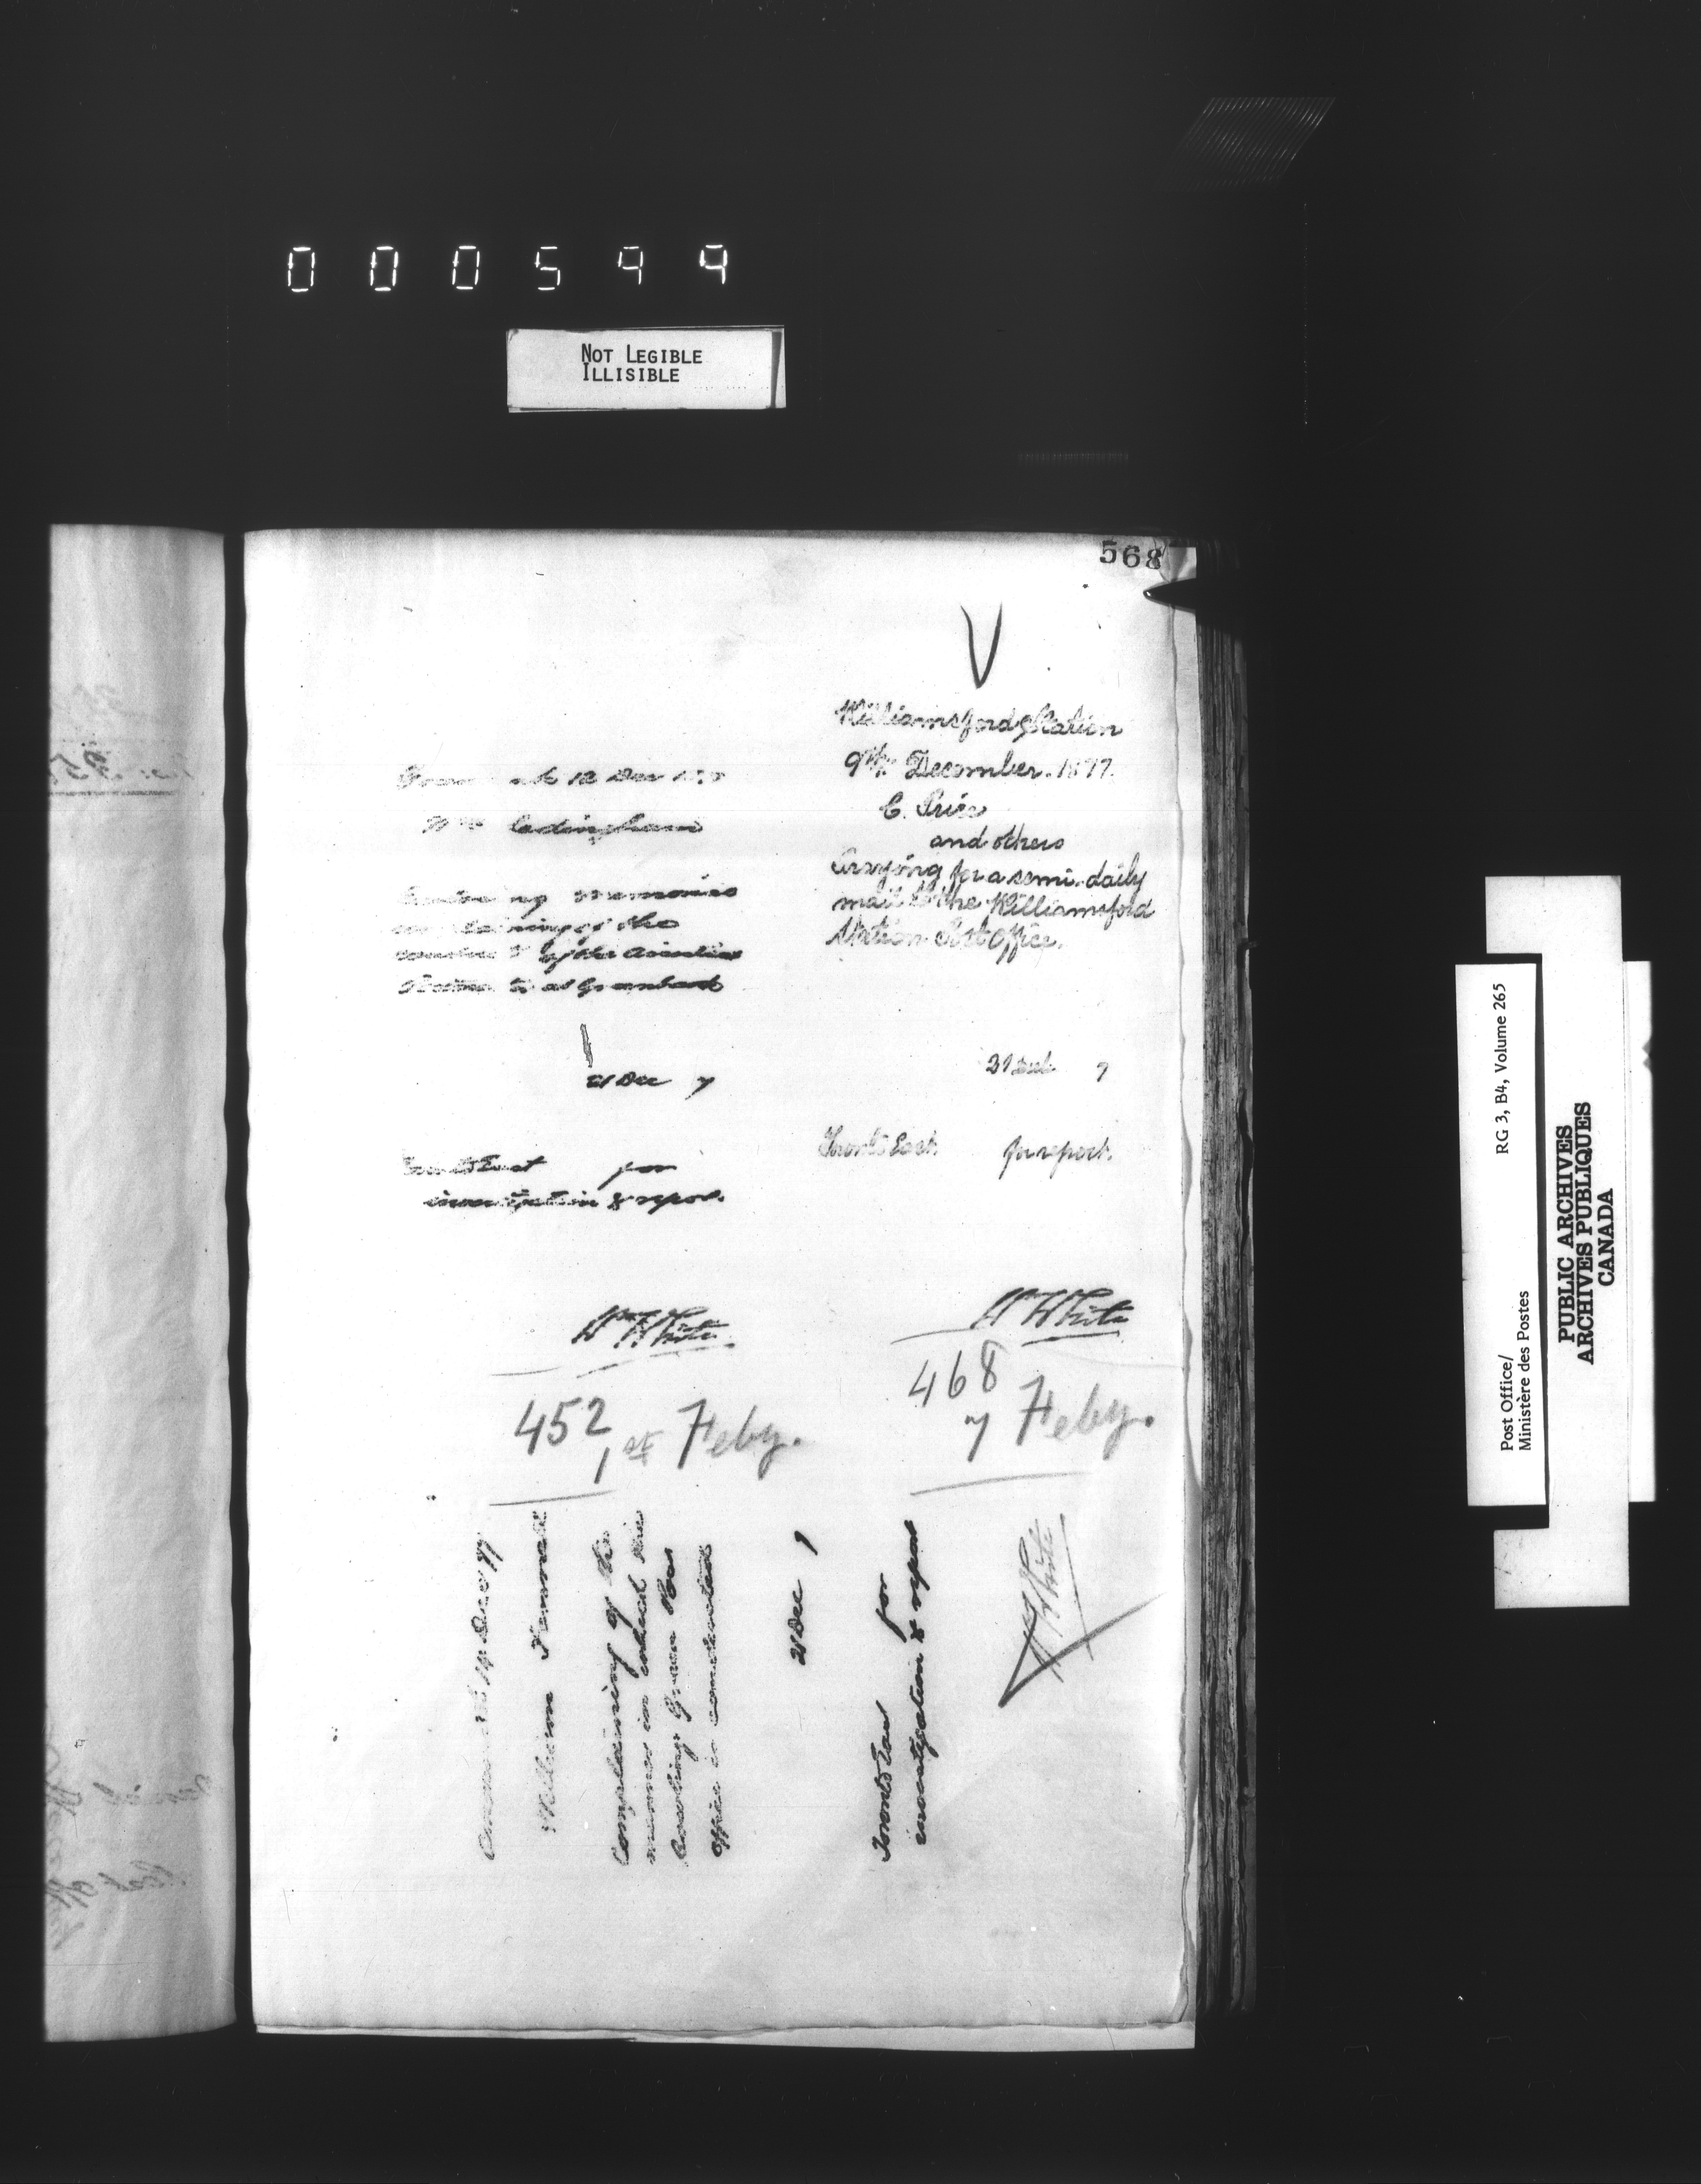 000599
NOT LEGIBLE
ILLISIBLE
568
Williamsford Station
9th December. 1877.
C. Price
and others
Praying for a semi-daily
mail to the Williamsford
Station Post Office.
21 Dec 7
Toronto East for report.
Wm White
468
7 Feby.
12 Dec
complaining of the
conduct of the
at Greenbank
21 Dec 7
Toronto East for
investigation & report
Wm White
452
1st Feby.
14 Dec 77
William
Complaining of the
manner in which the
Bowling Green Post
Office is conducted
21 Dec 7
Toronto East for
investigation & report
Wm White
RG 3, B4, Volume 265
Post Office/
Ministère des Postes
PUBLIC ARCHIVES
ARCHIVES PUBLIQUES
CANADA